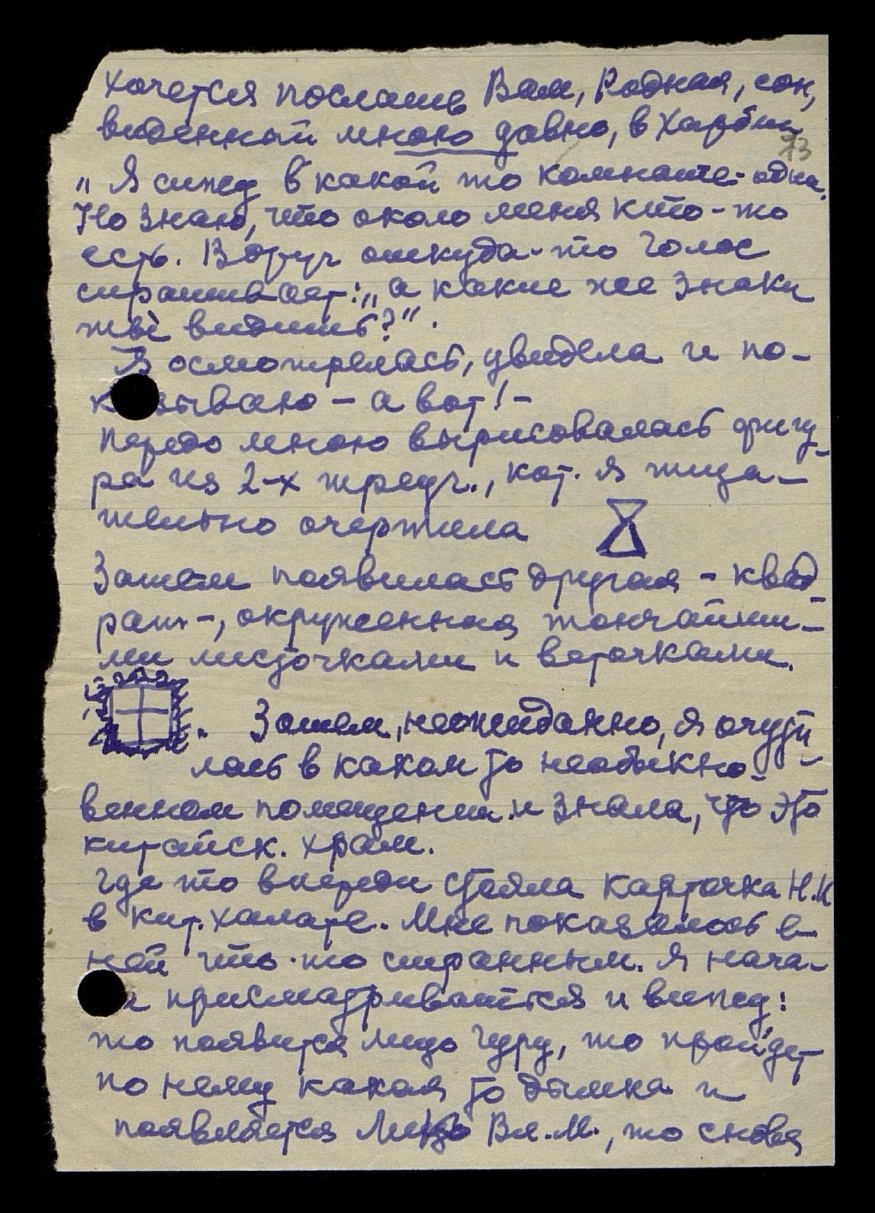 Хочется послать Вам, Родная, сон,
виденный мною давно, в Харбин
73
„Я сижу в какой то комнате - одна.
Но знаю, что около меня кто-то
есть. Вдруг откуда-то голос
спрашивает: „а какие же знаки
ты видишь?".
Я осмотрелась, увидела и по-
к зываю – а вот! –
передо мною вырисовалась фигу-
ра из 2-х треуг., кот. я тща-
тельно очертила
Затем появилась другая – квад
рат -, окруженная тончайши-
ми листочками и веточками.
Затем, неожиданно, я очути
лась в каком то необыкно-
венном помещении и знала, что это
китайск. храм.
Где то впереди стояла карточка Н.К
в кит. халате.. Мне показалось в
ней что-то странным. Я нача-
а присматриваться и вижу:
то появится лицо Гуру, то пройдет
по нему какая то дымка и
появляется Лицо Вл.М., то снова